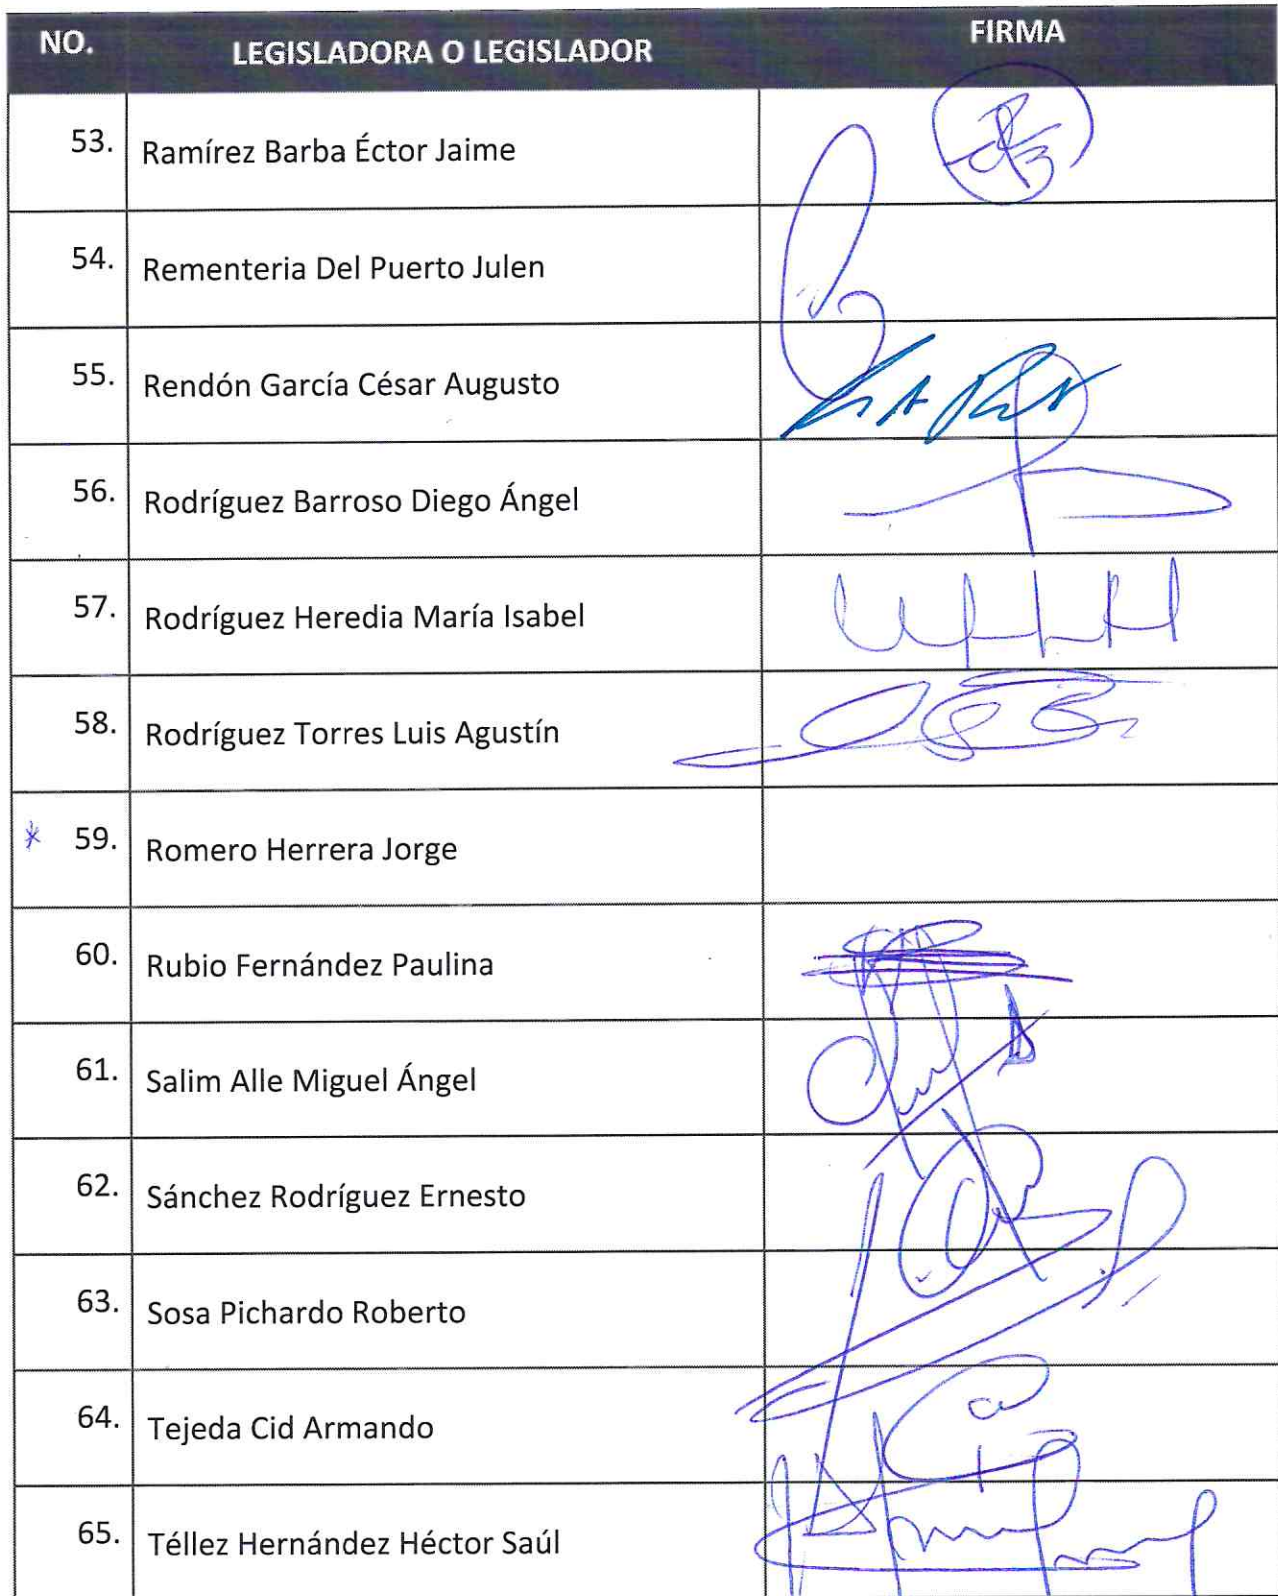 NO. LEGISLADORA O LEGISLADOR FIRMA
53. Ramírez Barba Éctor Jaime
54. Rementeria Del Puerto Julen
55. Rendón García César Augusto
56. Rodríguez Barroso Diego Ángel
57. Rodríguez Heredia María Isabel
58. Rodríguez Torres Luis Agustín
* 59. Romero Herrera Jorge
60. Rubio Fernández Paulina
61. Salim Alle Miguel Ángel
62. Sánchez Rodríguez Ernesto
63. Sosa Pichardo Roberto
64. Tejeda Cid Armando
65. Téllez Hernández Héctor Saúl